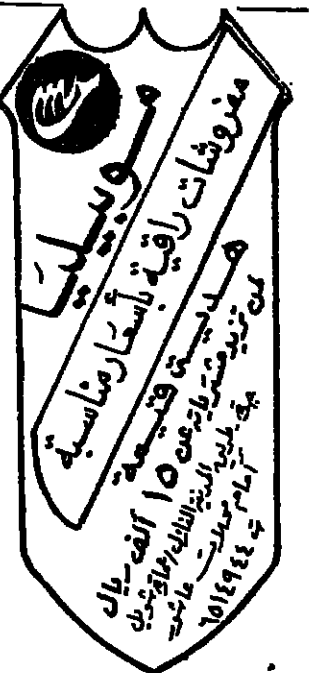 موبيليَا
مفروشات راقية بأسعَار مناسبة
هدية قيمة
لمن تزيد مشترياته عن ١٥ ألف ريال
جدة طريق المدينة النازل
أمام محلات
ت ٦٥١٤٩٤٤